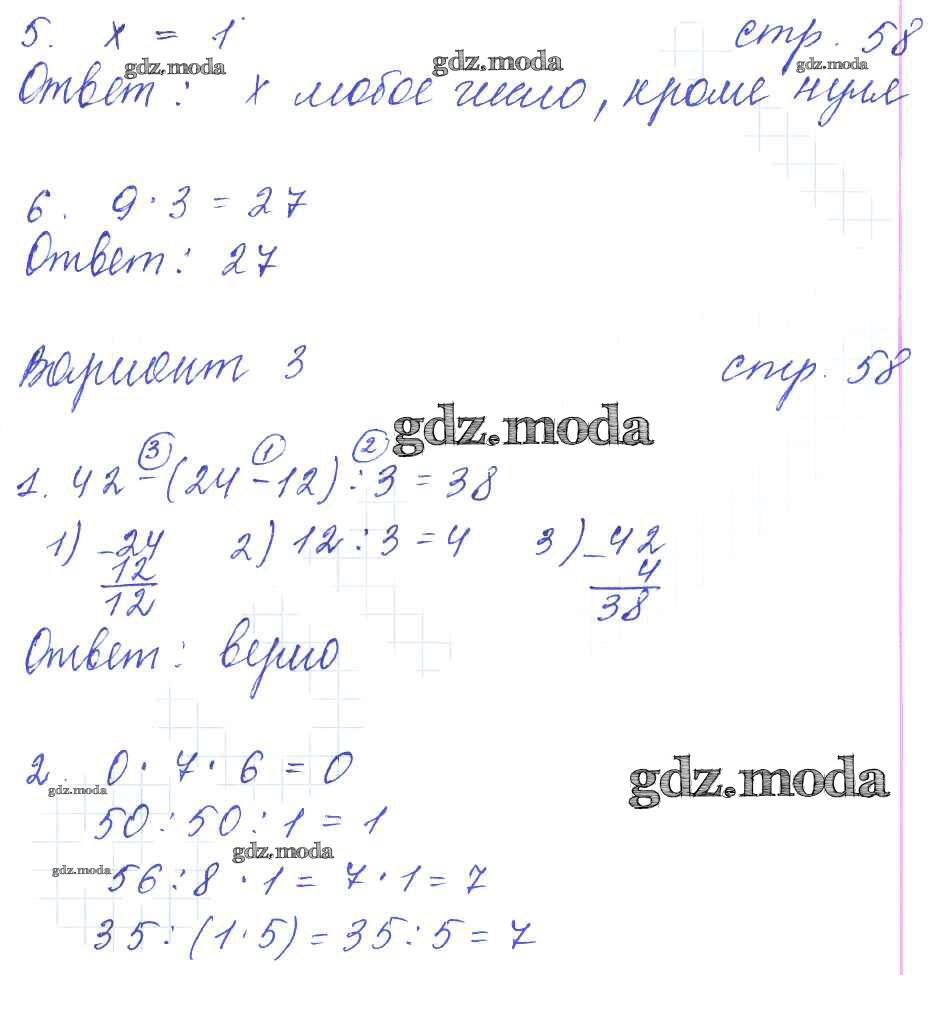 5. x = 1 стр. 58
gdz.moda gdz.moda gdz.moda
Ответ: x любое число, кроме нуля
6. 9 · 3 = 27
Ответ: 27
Вариант 3 стр. 58
gdz.moda
3 1 2
1. 42 - (24 - 12) : 3 = 38
1) - 24 2) 12 : 3 = 4 3) - 42
12 4
12 38
Ответ: верно
2. 0 · 7 · 6 = 0
gdz.moda gdz.moda
50 : 50 : 1 = 1
gdz.moda
gdz.moda
56 : 8 · 1 = 7 · 1 = 7
35 : (1 · 5) = 35 : 5 = 7